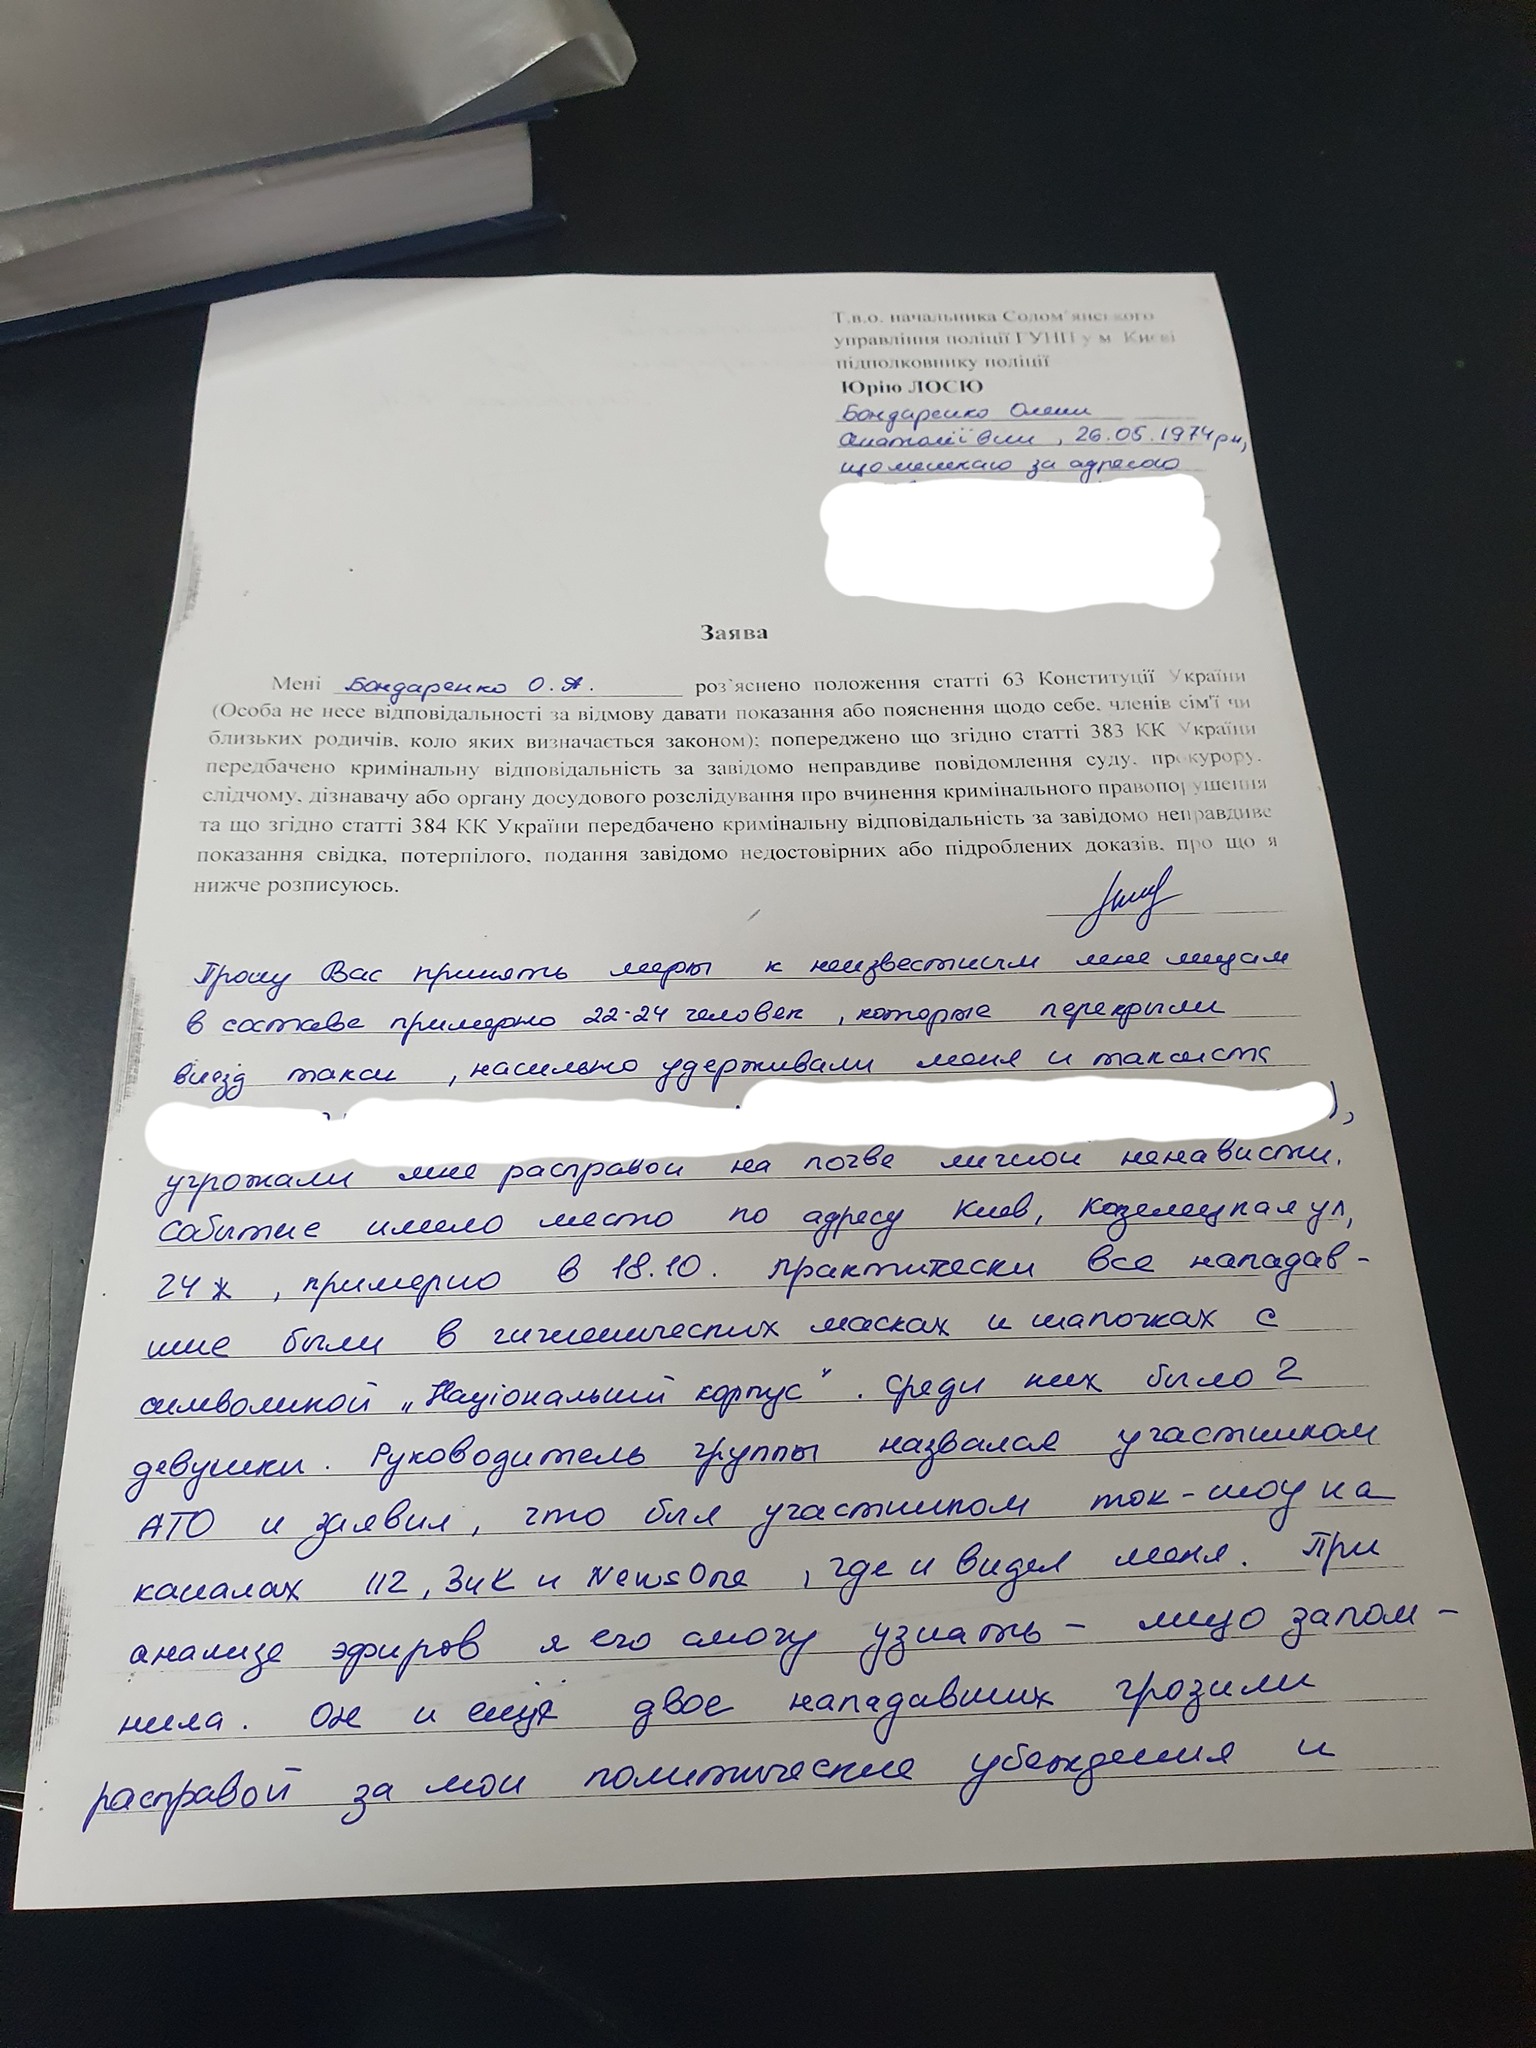 Т.в.о. начальника Солом'янського
управління поліції ГУНП у м. Києві
підполковнику поліції
Юрію ЛОСЮ
Бондаренко Олени
Анатоліївни, 26.05.1974рн,
що мешкаю за адресою
Заява
Мені Бондаренко О.А. роз'яснено положення статті 63 Конституції України
(Особа не несе відповідальності за відмову давати показання або пояснення щодо себе, членів сім'ї чи
близьких родичів, коло яких визначається законом); попереджено що згідно статті 383 КК України
передбачено кримінальну відповідальність за завідомо неправдиве повідомлення суду, прокурору,
слідчому, дізнавачу або органу досудового розслідування про вчинення кримінального правопорушення
та що згідно статті 384 КК України передбачено кримінальну відповідальність за завідомо неправдиве
показання свідка, потерпілого, подання завідомо недостовірних або підроблених доказів, про що я
нижче розписуюсь.
Прошу Вас принять меры к неизвестным мне лицам
в составе примерно 22-24 человек, которые перекрыли
виезд такси, насильно удерживали меня и таксиста
),
угрожали мне расправой на почве личной ненависти.
Событие имело место по адресу Киев, Козелецкая ул,
24 ж, примерно в 18.10. Практически все нападав-
шие были в гигиенических масках и шапочках с
символикой „Національний корпус". Среди них было 2
девушки. Руководитель группы назвался участником
АТО и заявил, что был участником ток-шоу на
каналах 112, ЗиК и NewsOne, где и видел меня. При
анализе эфиров я его смогу узнать - лицо запом-
нила. Он и ещё двое нападавших грозили
расправой за мои политические убеждения и